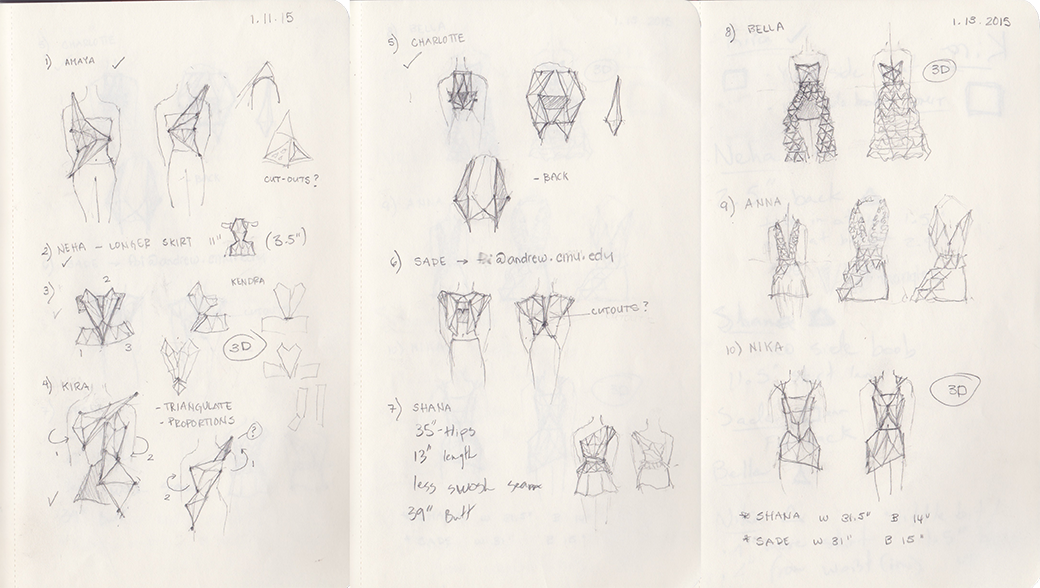 1.11.15
1) AMAYA
CUT-OUTS?
2) NEHA – LONGER SKIRT 11" (3.5")
3)
2
1
3
KENDRA
3D
- TRIANGULATE
- PROPORTIONS
4) KIRA
1
2
?
1
2
5) CHARLOTTE
- BACK
6) SADE → @andrew.cmu.edu
CUTOUTS?
7) SHANA
35"-Hips
13" length
less swoosh
39" Butt
1.13.2015
8) BELLA
3D
9) ANNA
10) NIKA
3D
* SHANA W 31.5" B 14"
* SADE W 31" B 15"